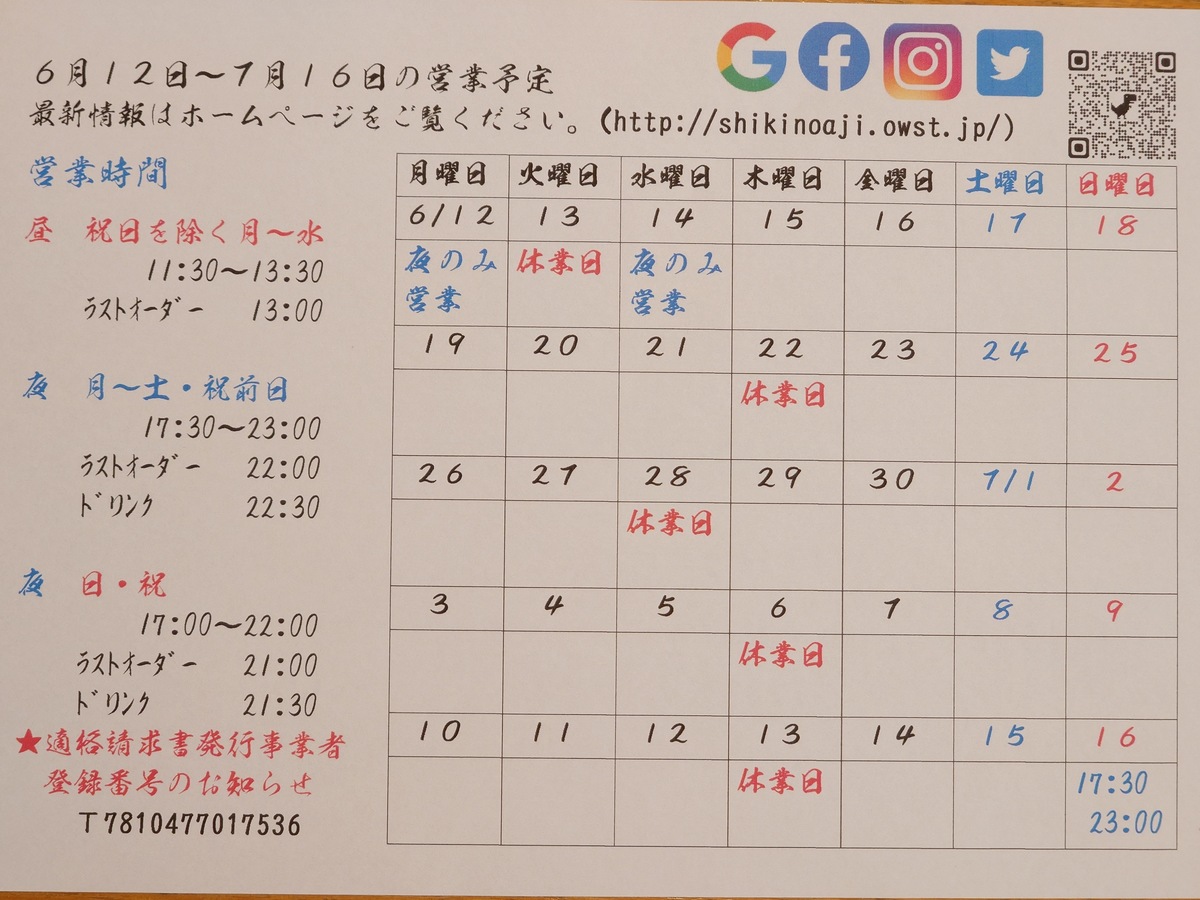 6月12日～7月16日の営業予定
最新情報はホームページをご覧ください。(http://shikinoaji.owst.jp/)
営業時間
昼 祝日を除く月～水
11:30～13:30
ﾗｽﾄｵｰﾀﾞｰ 13:00
夜 月～土・祝前日
17:30～23:00
ﾗｽﾄｵｰﾀﾞｰ 22:00
ﾄﾞﾘﾝｸ 22:30
夜 日・祝
17:00～22:00
ﾗｽﾄｵｰﾀﾞｰ 21:00
ﾄﾞﾘﾝｸ 21:30
★適格請求書発行事業者
登録番号のお知らせ
T7810477017536
月曜日 火曜日 水曜日 木曜日 金曜日 土曜日 日曜日
6/12 13 14 15 16 17 18
夜のみ 休業日 夜のみ
営業 営業
19 20 21 22 23 24 25
休業日
26 27 28 29 30 7/1 2
休業日
3 4 5 6 7 8 9
休業日
10 11 12 13 14 15 16
休業日 17:30
23:00